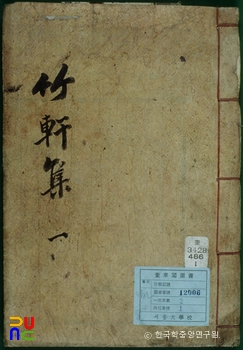 竹軒集 一
奎
3428
466
1
奎章閣圖書
12906
1
서울大學校
PUNC
© 한국학중앙연구원